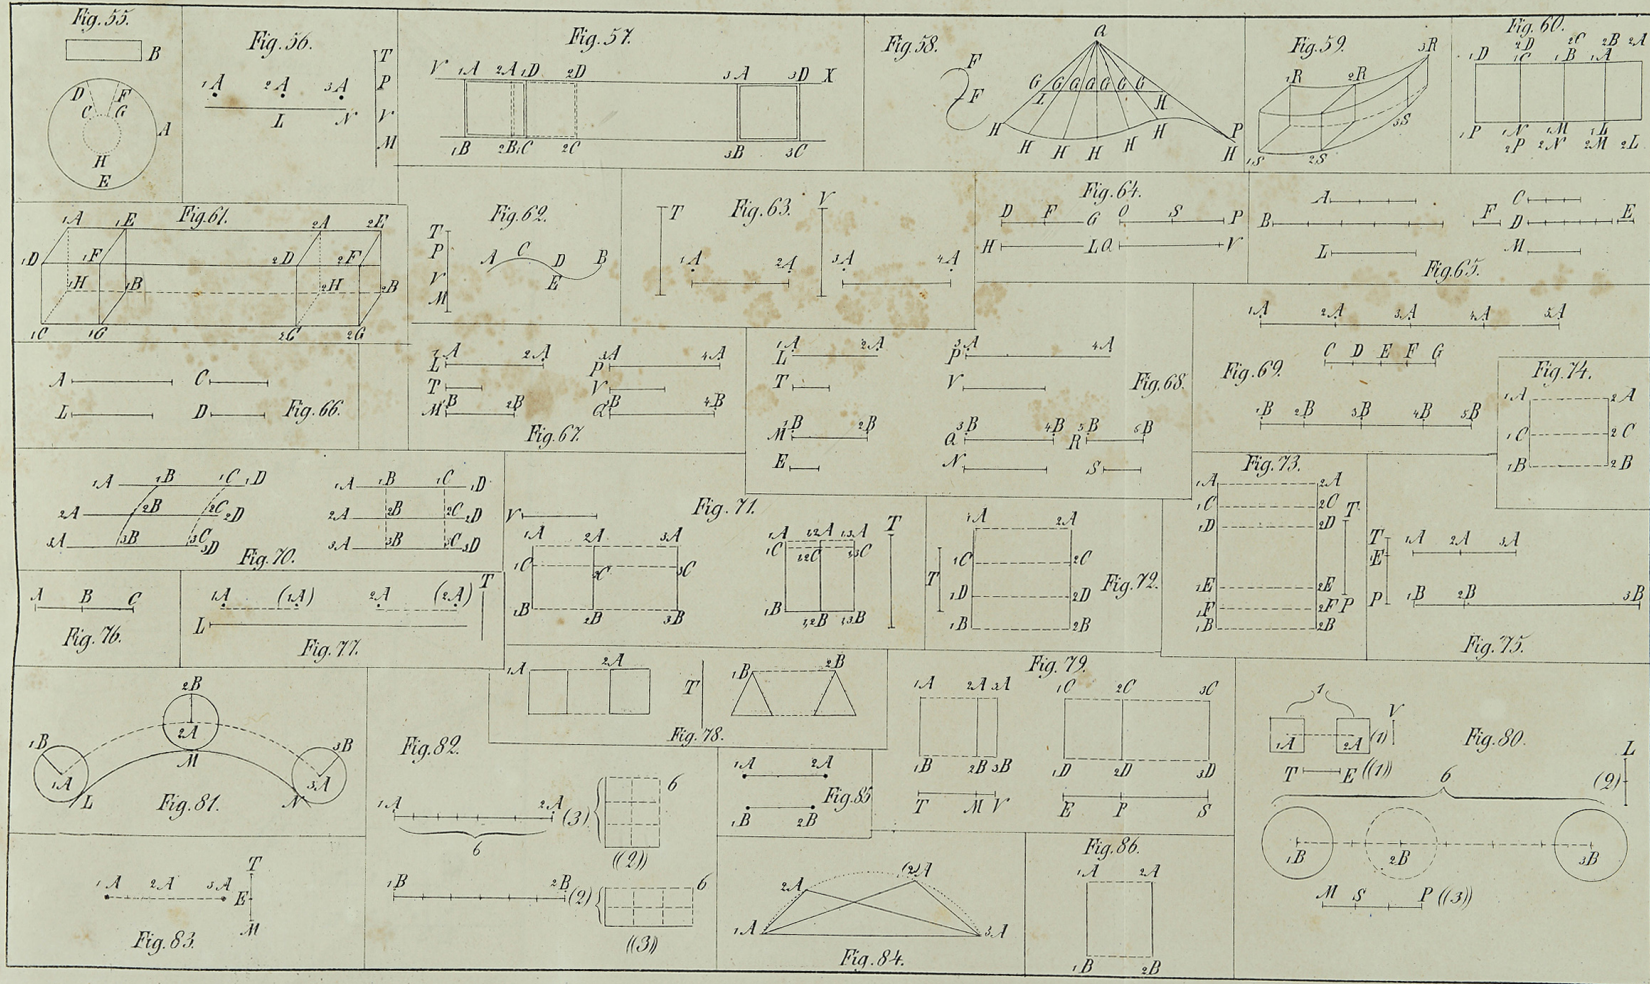 Fig. 55.
B
D F
C G
A
H
E
Fig. 56.
1A 2A 3A
L N
T
P
V
M
Fig. 57.
V 1A 2A 1D 2D 3A 3D X
1B 2B 1C 2C 3B 3C
Fig. 58.
F
F
a
G G G G G G G
I H
H H H H H H P
H
Fig. 59.
1R 2R 3R
1S 2S 3S
Fig. 60.
2D 2C 2B 2A
1D 1C 1B 1A
1P 1N 1M 1L
2P 2N 2M 2L
Fig. 61.
1A 1E 2A 2E
1D 1F 2D 2F
1H 1B 2H 2B
1C 1G 2C 2G
Fig. 62.
T
P
V
M
A C D B
E
Fig. 63.
T V
1A 2A 3A 4A
Fig. 64.
D F G O S P
H L Q V
Fig. 65.
A C
B F D E
L M
Fig. 66.
A C
L D
Fig. 67.
1A 2A 3A 4A
L P
T V
1B 2B 3B 4B
M Q
Fig. 68.
1A 2A 3A 4A
L P
T V
1B 2B 3B 4B 5B 6B
M Q R
E N S
Fig. 69.
1A 2A 3A 4A 5A
C D E F G
1B 2B 3B 4B 5B
Fig. 70.
1A 1B 1C 1D
2A 2B 2C 2D
3A 3B 3C 3D
1A 1B 1C 1D
2A 2B 2C 2D
3A 3B 3C 3D
Fig. 71.
V
1A 2A 3A
1C 2C 3C
1B 2B 3B
1A 1,2A 1,3A T
1C 1,2C 1,3C
1B 1,2B 1,3B
Fig. 72.
1A 2A
1C 2C
T 1D 2D
1B 2B
Fig. 73.
1A 2A
1C 2C
1D 2D T
1E 2E
1F 2F P
1B 2B
Fig. 74.
1A 2A
1C 2C
1B 2B
Fig. 75.
T 1A 2A 3A
E
P 1B 2B 3B
Fig. 76.
A B C
Fig. 77.
1A (1A) 2A (2A) T
L
Fig. 78.
1A 2A T 1B 2B
Fig. 79.
1A 2A 3A 1C 2C 3C
1B 2B 3B 1D 2D 3D
T M V E P S
Fig. 80.
1
1A 2A (1) V
T E ((1))
L
(2)
6
1B 2B 3B
M S P ((3))
Fig. 81.
2B
1B 2A 3B
1A M 3A
L N
Fig. 82.
1A 2A (3) 6
6 ((2))
1B 2B (2) 6
((3))
Fig. 83.
1A 2A 3A T
E
M
Fig. 84.
2A (2)A
1A 3A
Fig. 85
1A 2A
1B 2B
Fig. 86.
1A 2A
1B 2B